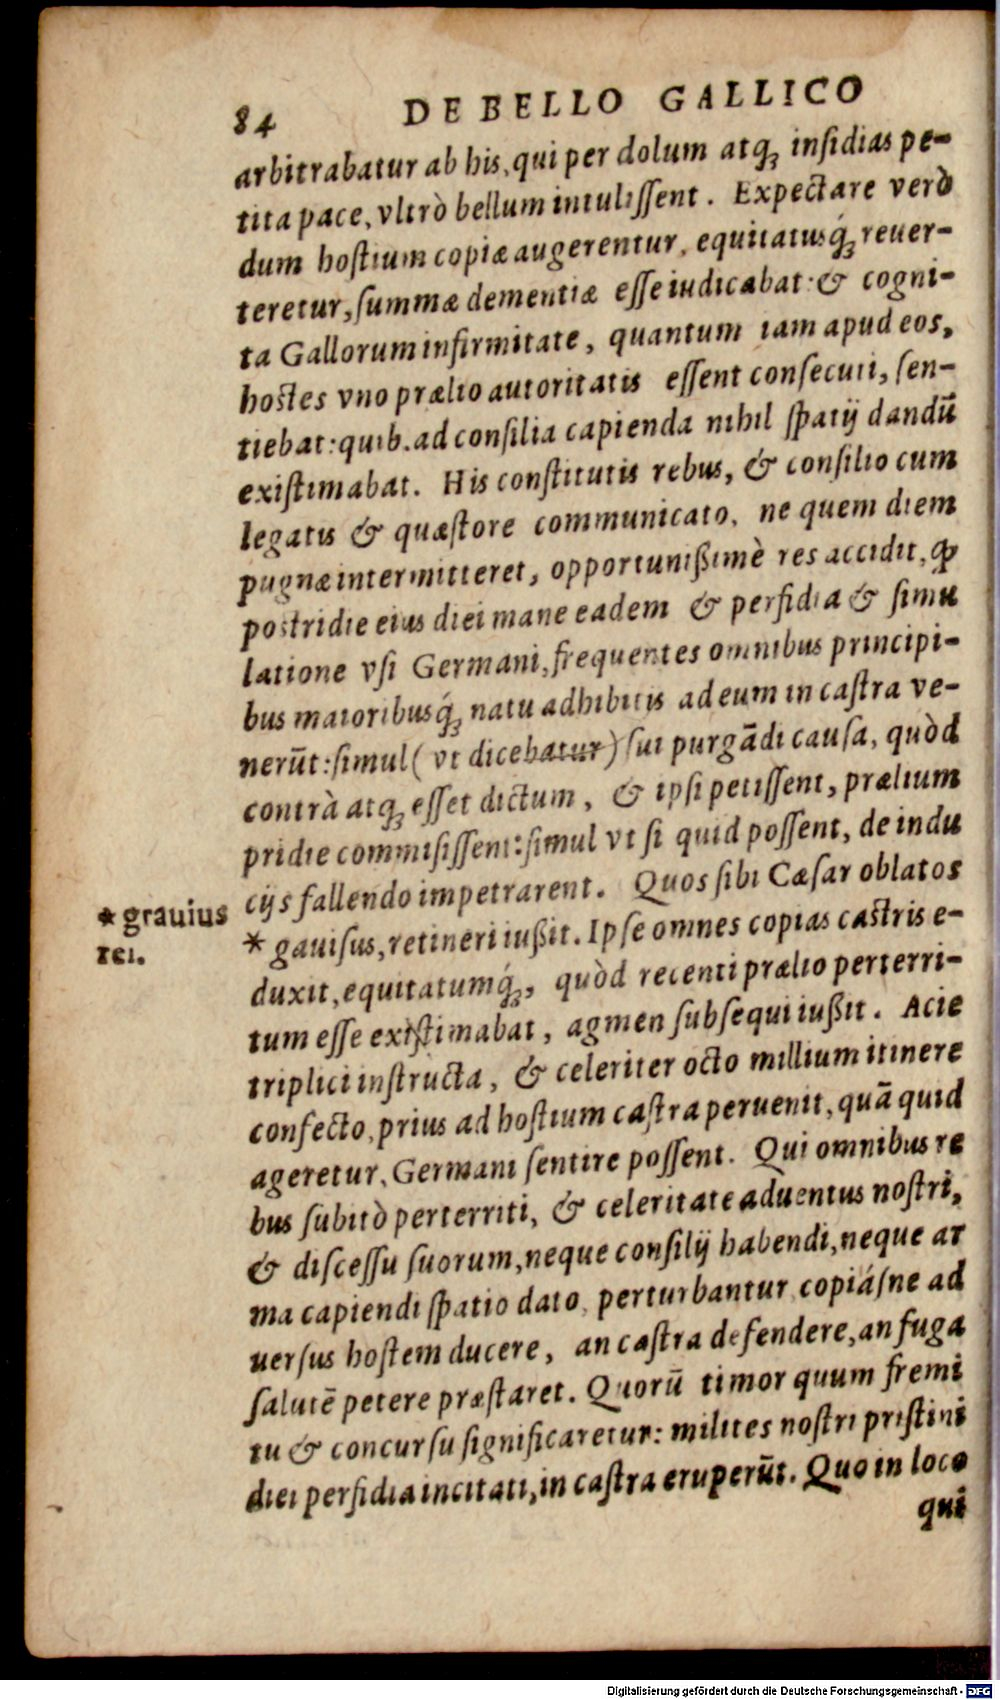 84 DE BELLO GALLICO
arbitrabatur ab his, qui per dolum atq; inſidias pe-
tita pace, vltrò bellum intuliſſent. Expectare verò
dum hoſtium copiæ augerentur, equitatusq́; reuer-
teretur, ſummæ dementiæ eſſe iudicabat: & cogni-
ta Gallorum infirmitate, quantum iam apud eos,
hoſtes vno prælio autoritatis eſſent conſecuti, ſen-
tiebat: quib. ad conſilia capienda nihil ſpatij dandū
exiſtimabat. His conſtitutis rebus, & conſilio cum
legatis & quæſtore communicato, ne quem diem
pugnæ intermitteret, opportunißimè res accidit, ꝙ
poſtridie eius diei mane eadem & perfidia & ſimu
latione vſi Germani, frequentes omnibus principi-
bus maioribusq́; natu adhibitis ad eum in caſtra ve-
nerūt: ſimul (vt dicebatur) ſui purgādi cauſa, quòd
contrà atq; eſſet dictum, & ipſi petiſſent, prælium
pridie commiſiſſent: ſimul vt ſi quid poſſent, de indu
cijs fallendo impetrarent. Quos ſibi Cæſar oblatos
* grauius
rei.
* gauiſus, retineri iußit. Ipſe omnes copias caſtris e-
duxit, equitatumq́;, quòd recenti prælio perterri-
tum eſſe exiſtimabat, agmen ſubſequi iußit. Acie
triplici inſtructa, & celeriter octo millium itinere
confecto, prius ad hoſtium caſtra peruenit, quā quid
ageretur, Germani ſentire poſſent. Qui omnibus re
bus ſubitò perterriti, & celeritate aduentus noſtri,
& diſceſſu ſuorum, neque conſilij habendi, neque ar
ma capiendi ſpatio dato, perturbantur copiáſne ad
uerſus hoſtem ducere, an caſtra defendere, an fuga
ſalutē petere præſtaret. Quorū timor quum fremi
tu & concurſu ſignificaretur: milites noſtri priſtini
diei perfidia incitati, in caſtra eruperūt. Quo in loco
qui
Digitalisierung gefördert durch die Deutsche Forschungsgemeinschaft - DFG